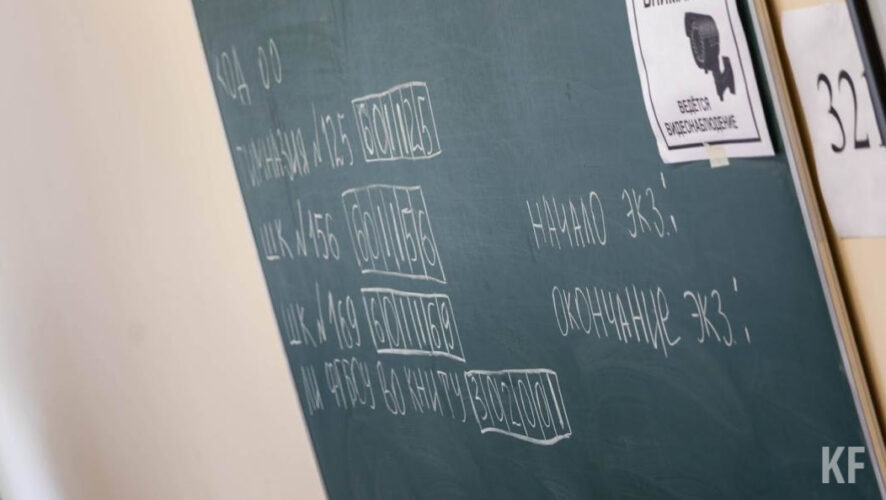 КОД ОО
ГИМНАЗИЯ №125 601125
ШК №156 601156
ШК №169 601169
ЛИ ФГБОУ ВО КНИТУ 302001
НАЧАЛО ЭКЗ.:
ОКОНЧАНИЕ ЭКЗ.:
ВЕДЁТСЯ
ВИДЕОНАБЛЮДЕНИЕ
321
KF